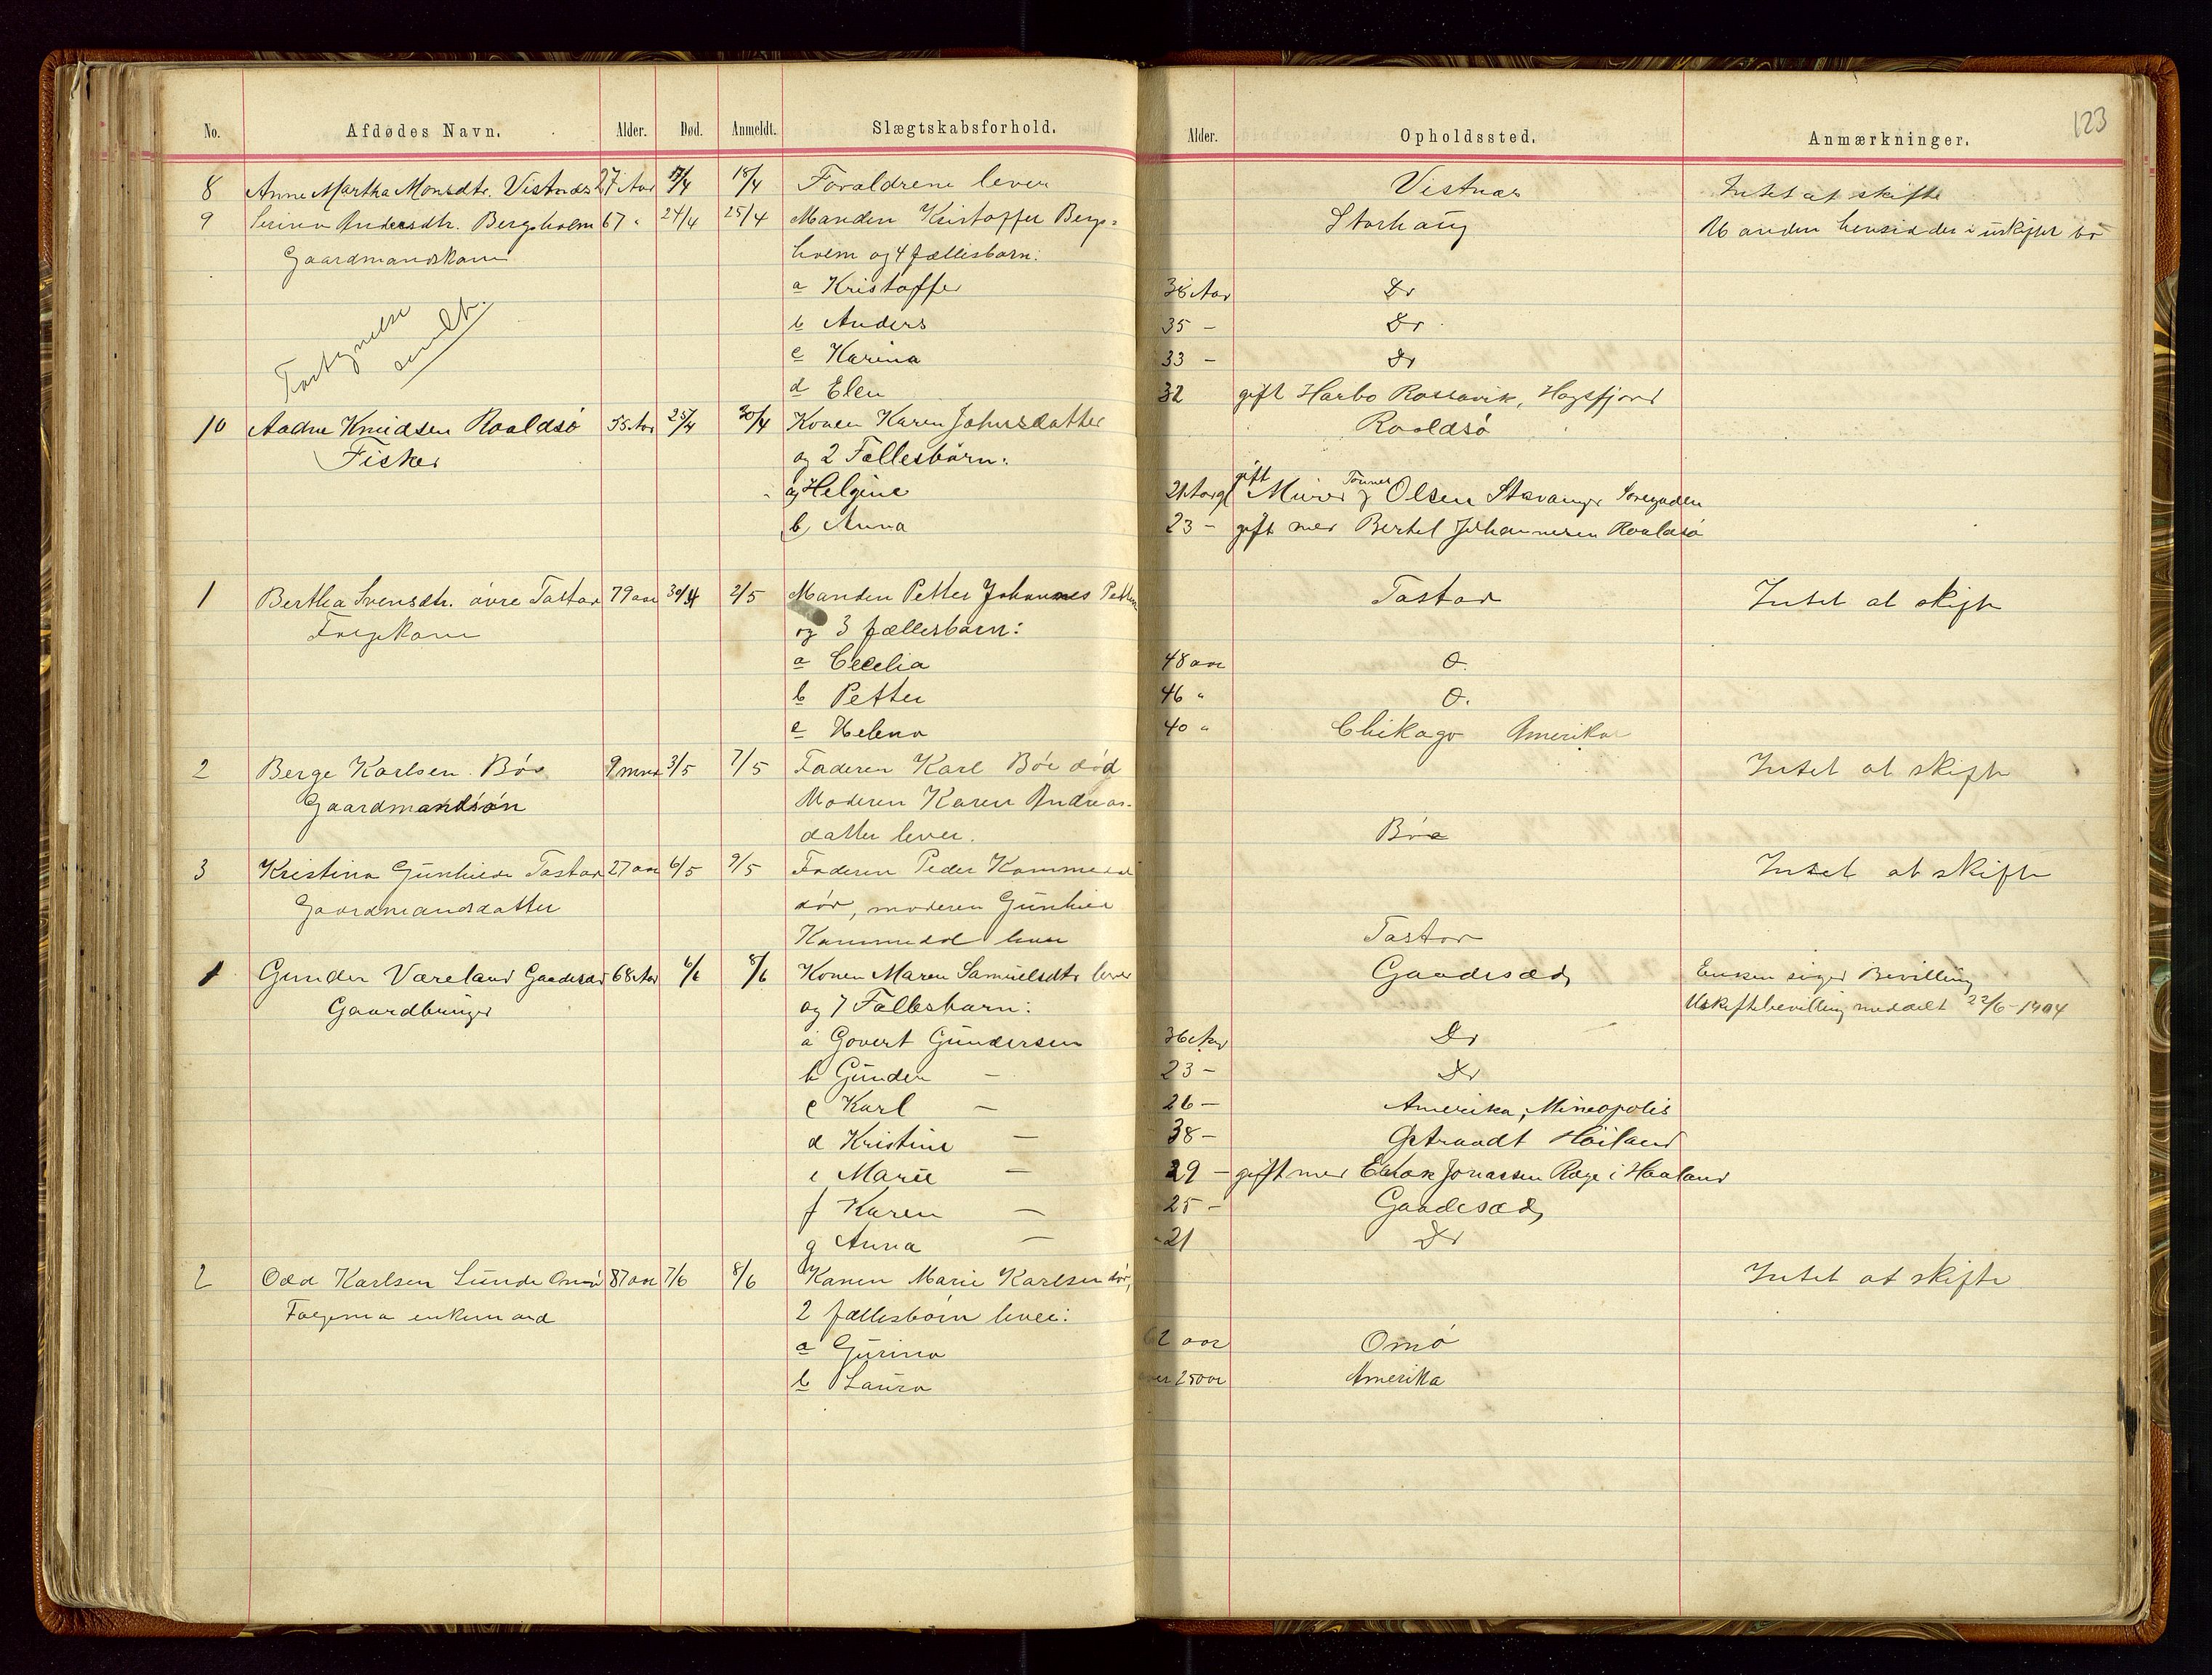 123
No. Afdødes Navn. Alder. Død. Anmeldt. Slægtskabsforhold. Alder. Opholdssted. Anmærkninger.
8 Anne Martha Monsdtr. Vistnæs 27 Aar 17/4 18/4 Forældrene lever Vistnæs Intet at skifte
9 Serina Andersdtr. Bergsholm 67 " 24/4 25/4 Manden Kristoffer Bergs= Storhaug Manden hensidder i uskiftet bo
Gaardmandskone holm og 4 fællesbarn:
a Kristoffer 38 Aar Do
b Anders 35 - Do
c Karina 33 - Do
d Elen 32 gift Harbo Rossavik, Høgsfjord
10 Aadne Knudsen Roaldsø 55 Aar 25/4 30/4 Konen Karen Johnsdatter Roaldsø
Fisker og 2 Fællesbørn:
a Helgine 21 Aar gift Murer Tønnes Olsen Stavanger
b Anna 23 - gift med Bertel Johannesen Roaldsø
1 Bertha Svensdtr. øvre Tastad 79 aar 30/4 2/5 Manden Petter Johannes Tastad Intet at skifte
og 3 fællesbarn:
a Cecelia 48 aar O.
b Petter 46 " O.
c Helena 40 " Chikago Amerika
2 Berge Karlsen Bøe 9 mnd 3/5 7/5 Faderen Karl Bøe død Intet at skifte
Gaardmandsøn Moderen Karen Andreas-
datter lever. Bøe
3 Kristina Gunhilde Tastad 27 aar 6/5 9/5 Faderen Peder Kammedal Intet at skifte
Gaardmandsdatter død, moderen Gunhild
Kammedal lever Tastad
1 Gunder Væreland Gandesæd 68 Aar 6/6 8/6 Konen Maren Samuelsdtr lever Gandesæd, Enken søger Bevilling
Gaardbruger og 7 Fællesbarn: Uskiftebevilling meddelt 22/6-1904
a Govert Gundersen 36 Aar Do
b Gunder - 23 - Do
c Karl - 26 - Amerika, Mineapolis
d Kristine - 38 - Høiland
e Marie - 29 - gift med Jonassen Røge i Haaland
f Karen - 25 - Gandesæd,
g Anna - 21 Do
2 Odd Karlsen Lunde Omø 87 aar 7/6 8/6 Konen Marie Karlsen død, Intet at skifte
enkemand 2 fællesbørn lever:
a Gurina 62 aar Omø
b Laura 25 aar Amerika